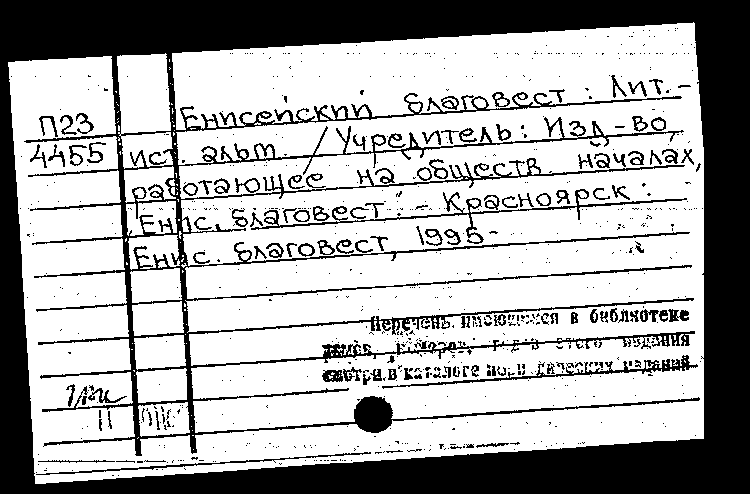 П23 Енисейский благовест : Лит.-
4455 ист. альм. / Учредитель: Изд-во,
работающее на обществ. началах,
"Енис. благовест". - Красноярск :
Енис. благовест, 1995-
Перечень имеющихся в библиотеке
томов, номеров, годов этого издания
смотри в каталоге периодических изданий